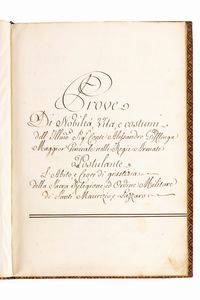 Prove
Di Nobiltà, Vita, e costumi
dell' Illmo Sig. Conte Alessandro Gifflenga
Maggior Generale nelle Regie Armate
Postulante
L'Abito, e Croce di giustizia
della Sacra Religione, ed Ordine Militare
de' Santi Maurizio, e Lazzaro